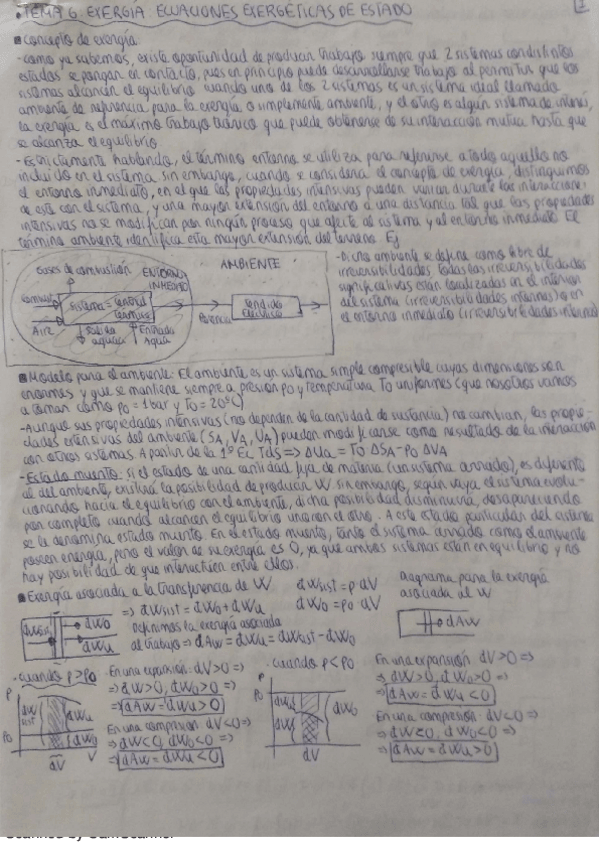 • TEMA 6: EXERGÍA: ECUACIONES EXERGÉTICAS DE ESTADO
1
■ Concepto de exergía:
- como ya sabemos, existe oportunidad de producir trabajo siempre que 2 sistemas con distintos
estados se pongan en contacto, pues en principio puede desarrollarse trabajo al permitir que los
sistemas alcancen el equilibrio cuando uno de los 2 sistemas es un sistema ideal llamado
ambiente de referencia para la exergía o simplemente ambiente, y el otro es algún sistema de interés,
la exergía es el máximo trabajo teórico que puede obtenerse de su interacción mutua hasta que
se alcanza el equilibrio
- Estrictamente hablando, el término entorno se utiliza para referirse a todo aquello no
incluido en el sistema sin embargo, cuando se considera el concepto de exergía, distinguimos
el entorno inmediato, en el que las propiedades intensivas pueden variar durante las interacciones
de este con el sistema, y una mayor extensión del entorno a una distancia tal que las propiedades
intensivas no se modifican por ningún proceso que afecte al sistema y al entorno inmediato El
término ambiente identifica esta mayor extensión del terreno. Ej
Gases de combustión
ENTORNO
INMEDIATO
AMBIENTE
Sistema = Central
térmica
Aire
Salida
agua
Entrada
Agua
Potencia
Tendido
Eléctrico
- Dicho ambiente se define como libre de
irreversibilidades todas las irreversibilidades
significativas están localizadas en el interior
del sistema (irreversibilidades internas) o en
el entorno inmediato (irreversibilidades
■ Modelo para el ambiente: El ambiente es un sistema simple compresible cuyas dimensiones son
enormes y que se mantiene siempre a presión p0 y temperatura T0 uniformes (que nosotros vamos
a tomar como p0 = 1 bar y T0 = 20ºC)
- Aunque sus propiedades intensivas (no dependen de la cantidad de sustancia) no cambian, las propie-
dades extensivas del ambiente (SA, VA, UA) pueden modificarse como resultado de la interacción
con otros sistemas. A partir de la 1º Ec Tds => ΔUa = T0 ΔSA - P0 ΔVA
- Estado muerto: si el estado de una cantidad fija de materia (un sistema cerrado), es diferente
al del ambiente, existirá la posibilidad de producir W sin embargo, según vaya el sistema evolu-
cionando hacia el equilibrio con el ambiente, dicha posibilidad disminuirá, desapareciendo
por completo cuando alcancen el equilibrio uno con el otro. A este estado particular del sistema
se la denomina estado muerto. En el estado muerto, tanto el sistema cerrado como el ambiente
poseen energía, pero el valor de su exergía es 0, ya que ambos sistemas están en equilibrio y no
hay posibilidad de que interactúen entre ellos.
■ Exergía asociada a la transferencia de W
dWsist = p dV
dW0 = p0 dV
Diagrama para la exergía
asociada al W
dWsist
dW0
dWu
=> dWsist = dW0 + dWu
Definimos la exergía asociada
al trabajo => dAw = dWu = dWsist - dW0
dAw
• cuando p > p0
En una expansión: dV>0 =>
=> dW>0, dW0>0 =>
=> dAw = dWu > 0
En una compresión dV<0 =>
=> dW<0, dW0<0 =>
=> dAw = dWu < 0
P
P0
dW
sist
dWu
dW0
dV
V
• cuando p < p0
P
P0
dWu
dW
dW0
dV
En una expansión dV>0 =>
=> dW>0, dW0>0 =>
=> dAw = dWu < 0
En una compresión dV<0 =>
=> dW<0, dW0<0 =>
=> dAw = dWu > 0